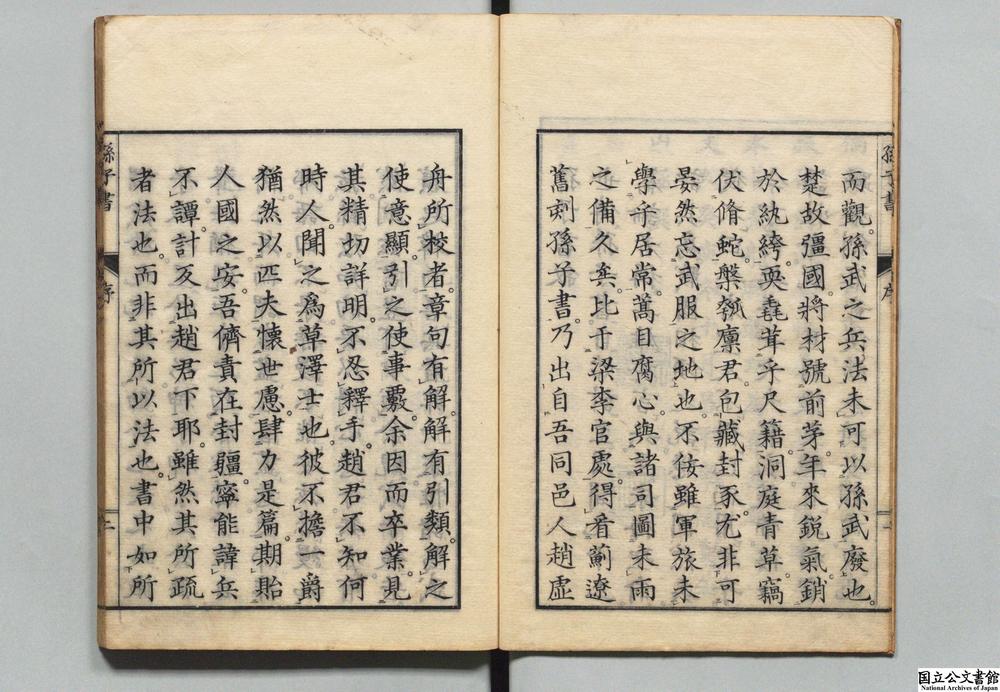 而觀孫武之兵法未可以孫武廢也
楚故彊國將材號前茅年來鋭氣銷
於紈綺耎毳茸乎尺籍洞庭青草竊
伏脩蛇槃瓠廩君包藏封豕尤非可
晏然忘武服之地也不佞雖軍旅未
學乎居常蒿目腐心與諸司圖未雨
之備久矣比于梁李官處得看薊遼
舊刻孫子書乃出自吾同邑人趙虛
孫子書
序
二
舟所校者章句有解解有引類解之
使意顯引之使事覈余因而卒業見
其精切詳明不忍釋手趙君不知何
時人聞之爲草澤士也彼不擔一爵
猶然以匹夫懷世慮肆力是篇期貽
人國之安吾儕責在封疆寧能諱兵
不譚計反出趙君下耶雖然其所疏
者法也而非其所以法也書中如所
孫子書
序
二
国立公文書館
National Archives of Japan